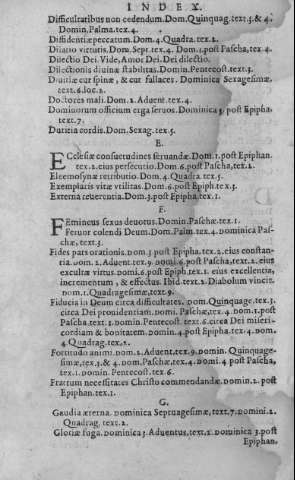 INDEX.
Difficultatibus non cedendum. Dom. Quinquag. text. 3. & 4.
Domin. Palma. tex. 4.
Diffidentiæ peccatum. Dom. 4. Quadra. tex. 2.
Dilatio virtutis. Dom. Sept. tex. 4. Dom. 1. post Pascha, tex. 4.
Dilectio Dei. Vide, Amor Dei. Dei dilectio.
Dilectionis diuinæ stabilitas. Domin. Pentecost. text. 3.
Diuitiæ cur spinæ, & cur fallaces. Dominica Sexagesimæ,
text. 6. loc. 2.
Doctores mali. Dom. 2. Aduent. tex. 4.
Dominorum officium erga seruos. Dominica 3. post Epipha.
text. 7.
Duritia cordis. Dom. Sexag. tex. 5.
E.
ECclesiæ consuetudines seruandæ. Dom. 1. post Epiphan.
tex. 2. eius persecutio. Dom. 6. post Pascha, text. 2.
Eleemosynæ retributio. Dom. 4. Quadra. tex. 5.
Exemplaris vitæ vtilitas. Dom. 6. post Epiph. tex. 3.
Externa reuerentia. Dom. 3. post Epipha. tex. 1.
F.
FEmineus sexus deuotus. Domin. Paschæ. tex. 1.
Feruor colendi Deum. Dom. Palm. tex. 4. Dominica Pas-
chæ, text. 3.
Fides pars orationis. Dom. 3. post Epipha. tex. 2. eius constan-
tia. Dom. 2. Aduent. tex. 9. Domi. 6. post Pascha, text. 2. eius
excultæ virtus. Domi. 6. post Epiph. tex. 1. eius excellentia,
incrementum, & effectus. Ibid. text. 2. Diabolum vincit.
Dom. 1. Quadragesimæ, tex. 9.
Fiducia in Deum circa difficultates. Dom. Quinquage. tex. 3.
circa Dei prouidentiam. Domi. Paschæ, tex. 4. Dom. 1. post
Pascha. text. 3. Domin. Pentecost. text. 6. circa Dei miseri-
cordiam & bonitatem. Domin. 4. post Epipha. tex. 4. Dom.
4. Quadrag. tex. 2.
Fortitudo animi. Dom. 2. Aduent. tex. 9. Domin. Quinquage-
simæ, tex. 3. & 4. Dom. Paschæ, tex. 4. Domi. 4 post Pascha,
tex. 1. Domin. Pentecost. tex. 6.
Fratrum necessitates Christo commendandæ. Domin. 2. post
Epiphan. tex. 1.
G.
GAudia æterna. Dominica Septuagesimæ, text. 7. Domini. 2.
Quadrag. text. 2.
Gloriæ fuga. Dominica 3. Aduentus, text. 2. Dominica 3. post
Epiphan.